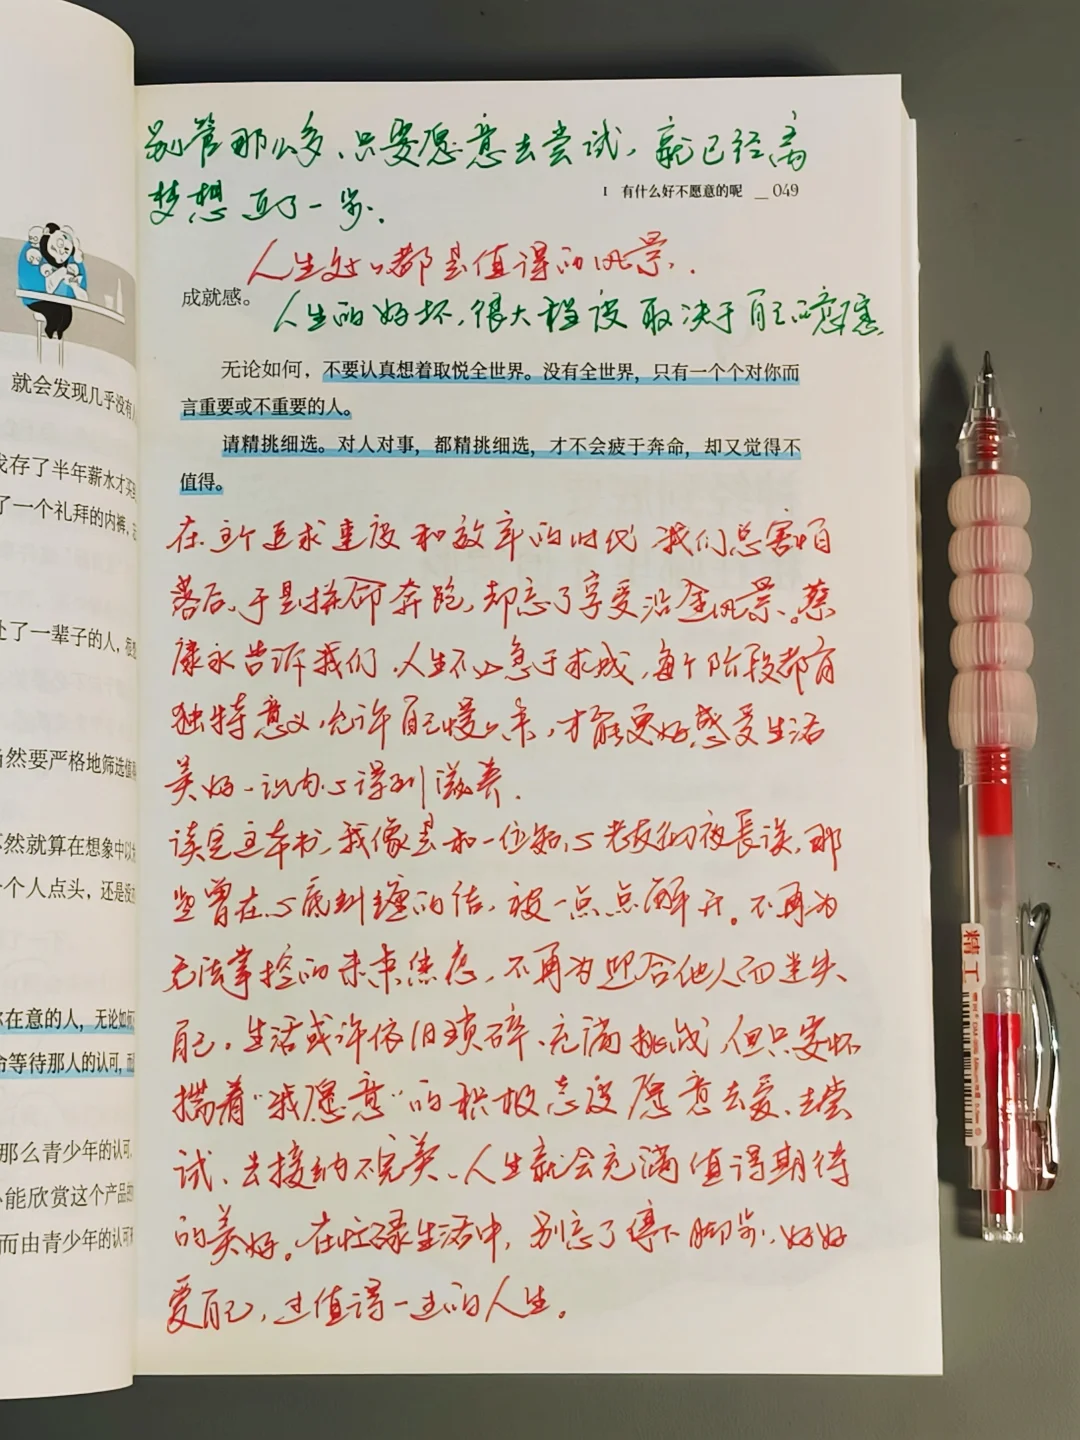 别管那么多、只要愿意去尝试，就已经离
I 有什么好不愿意的呢 __049
梦想近了一步.
人生处处都是值得的风景.
成就感。
人生的好坏,很大程度取决于自己的意愿
无论如何，不要认真想着取悦全世界。没有全世界，只有一个个对你而
言重要或不重要的人。
请精挑细选。对人对事，都精挑细选，才不会疲于奔命，却又觉得不
值得。
在这个追求速度和效率的时代 我们总害怕
落后,于是拼命奔跑,却忘了享受沿途风景。蔡
康永告诉我们,人生不必急于求成,每个阶段都有
独特意义,允许自己慢慢来,才能更好感受生活
美好、让内心得到滋养.
读完这本书,我像是和一位知心老友彻夜長谈,那
些曾在心底纠缠的结,被一点点解开。不再为
无法掌控的未来焦虑,不再为迎合他人而迷失
自己。生活或许依旧琐碎、充满挑战,但只要怀
揣着“我愿意”的积极态度 愿意去爱、去尝
试、去接纳不完美、人生就会充满值得期待
的美好。在忙碌生活中,别忘了停下脚步,好好
爱自己,过值得一过的人生。
就会发现几乎没有
我存了半年薪水才买
了一个礼拜的内裤，
处了一辈子的人，
当然要严格地筛选值
不然就算在想象中以
一个人点头，还是没
你在意的人，无论如何
命等待那人的认可，而
那么青少年的认可，
不能欣赏这个产品
而由青少年的认可
精工